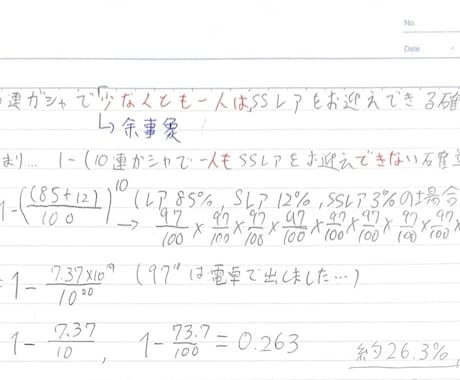 No.
Date
連ガシャで「少なくとも一人は」SSレアをお迎えできる確
↳余事象
まり… 1-(10連ガシャで一人もSSレアをお迎えできない確率
1-((85+12)/100)^10 (レア85%, Sレア12%, SSレア3%の場合
→ 97/100 × 97/100 × 97/100 × 97/100 × 97/100 × 97/100 × 97/100 × 97/100 × 97/100 ×
= 1 - 7.37×10^19/10^20 (97^10は電卓で出しました…)
1 - 7.37/10, 1 - 73.7/100 = 0.263 約26.3%